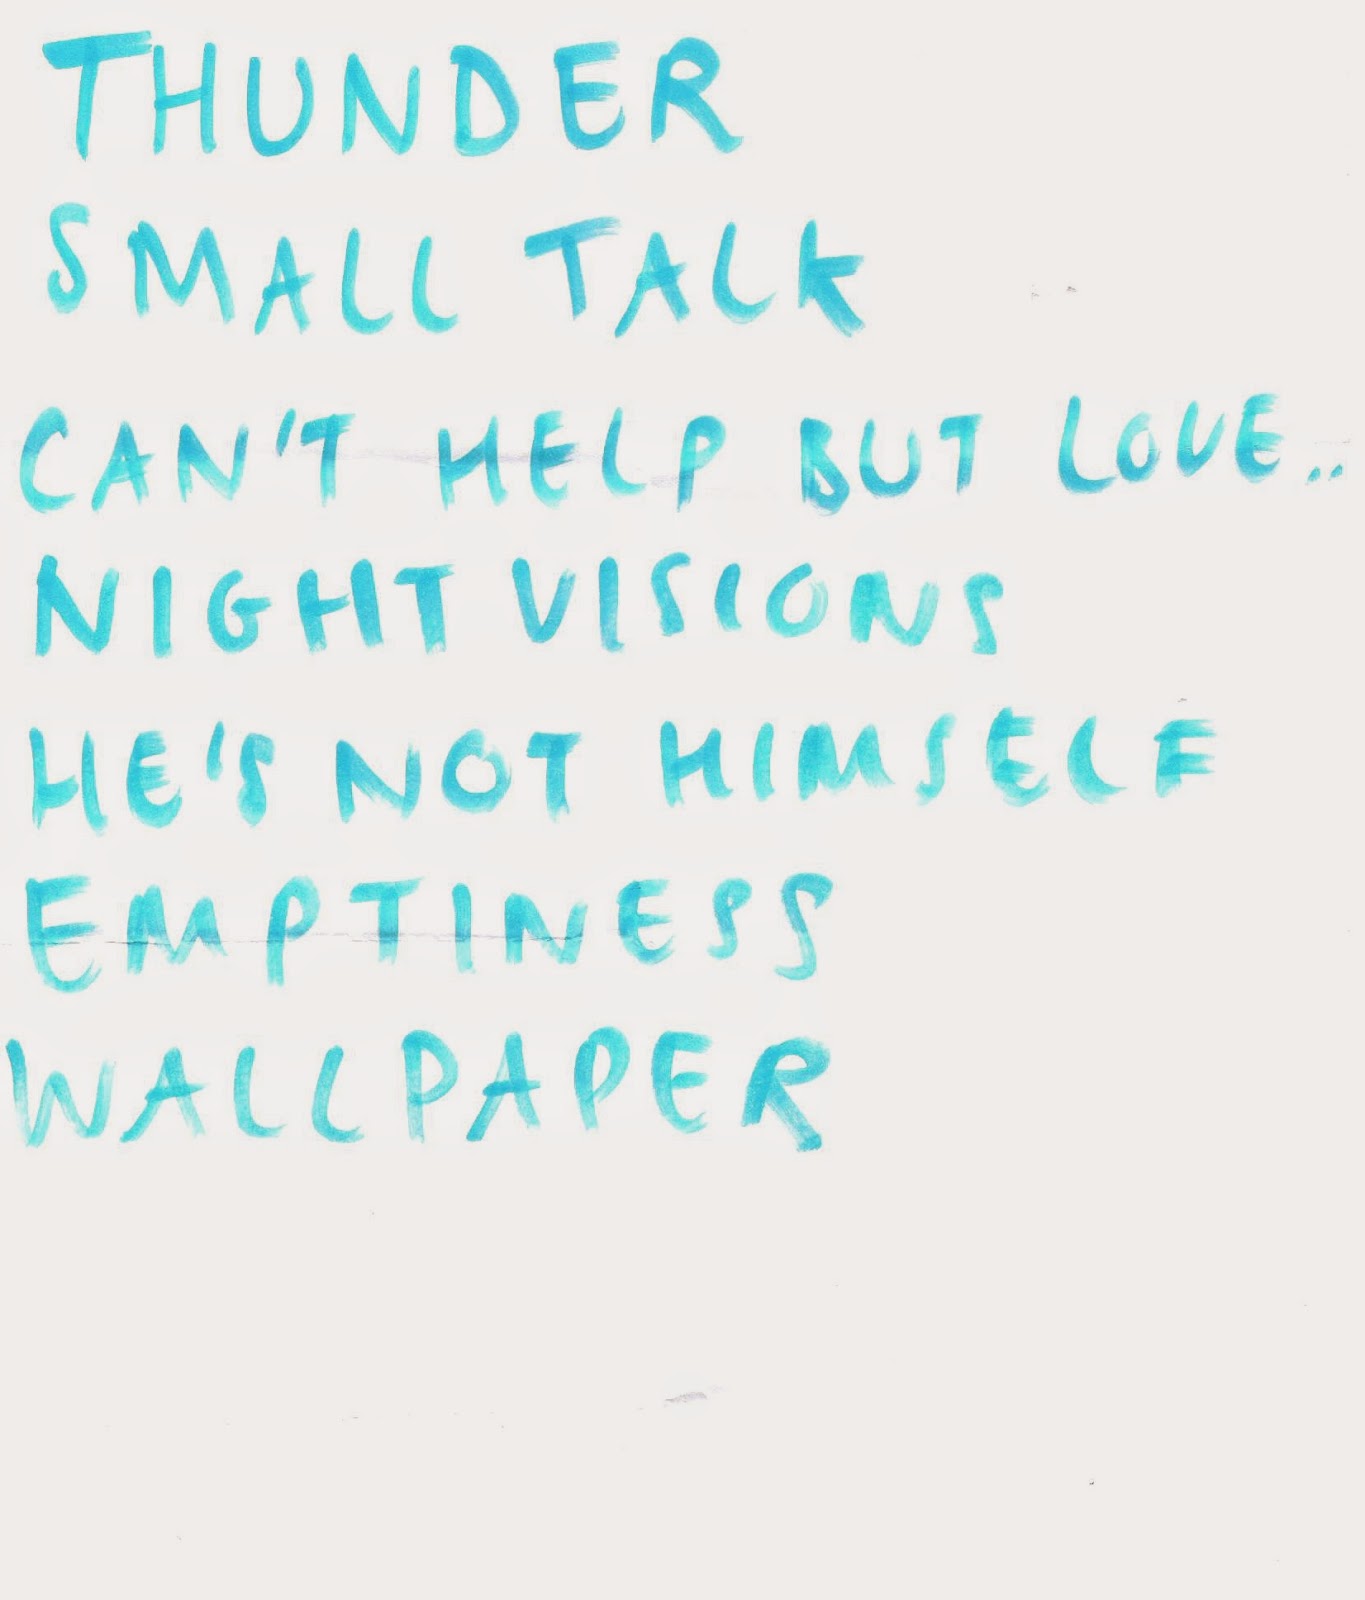 THUNDER
SMALL TALK
CAN'T HELP BUT LOVE..
NIGHT VISIONS
HE'S NOT HIMSELF
EMPTINESS
WALLPAPER